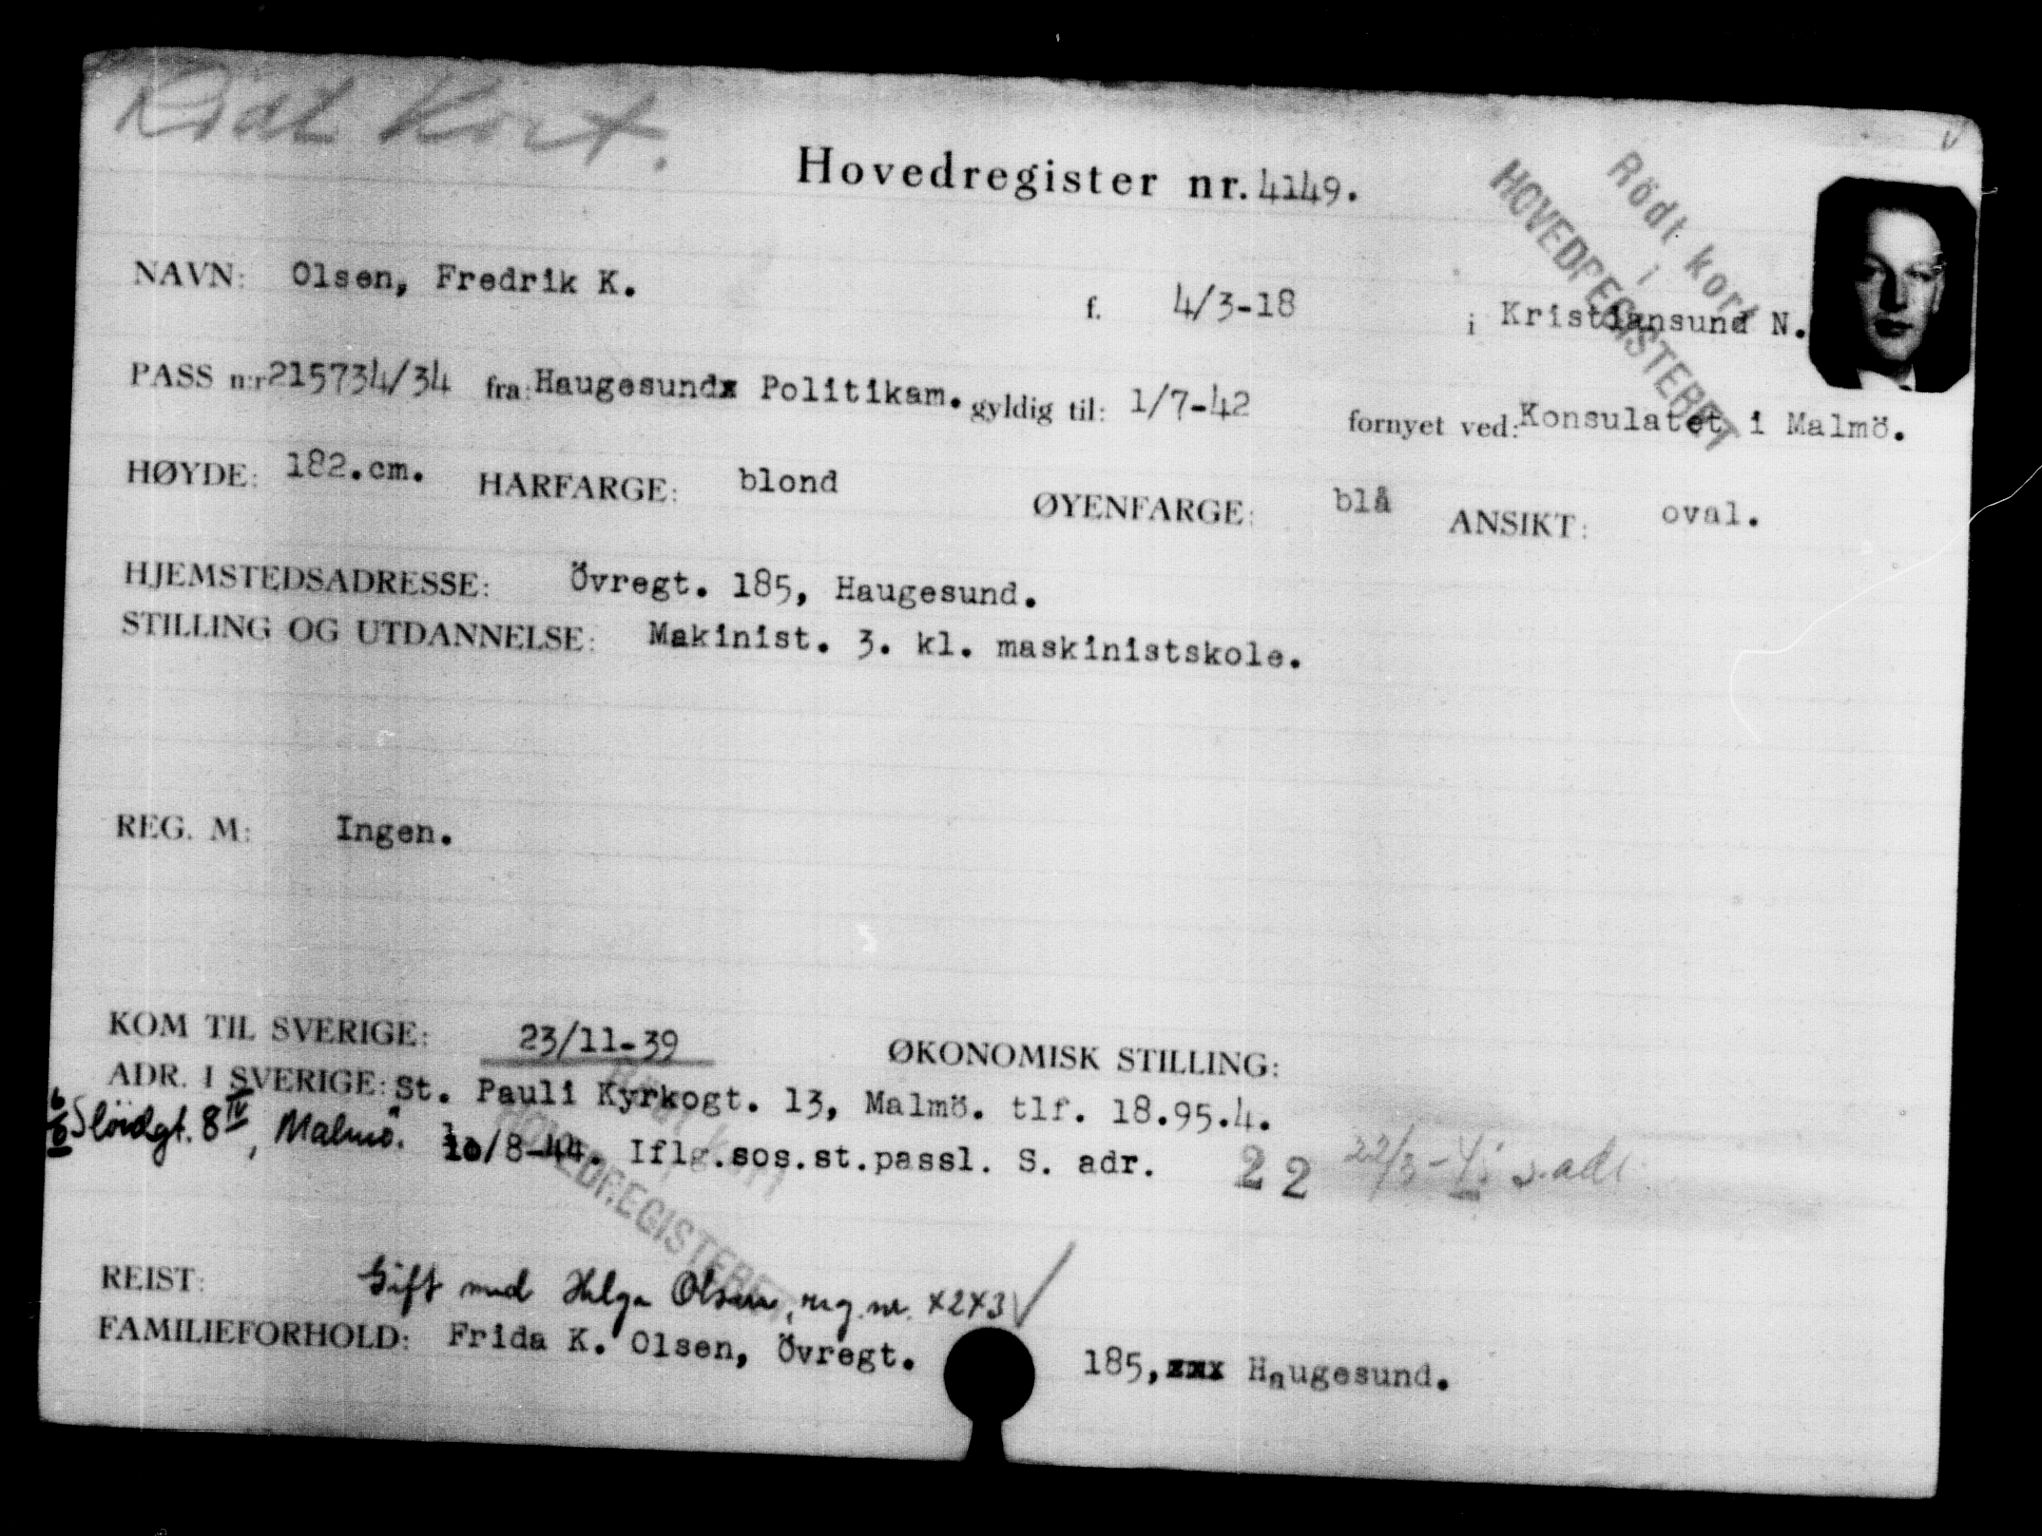 Rödt Kort.
Hovedregister nr. 4149.
Rödt kort
i
HOVEDREGISTERET
NAVN: Olsen, Fredrik K. f. 4/3-18 i Kristiansund N.
PASS n:r 215734/34 fra: Haugesundx Politikam. gyldig til: 1/7-42 fornyet ved: Konsulatet i Malmö.
HØYDE: 182.cm. HARFARGE: blond ØYENFARGE: blå ANSIKT: oval.
HJEMSTEDSADRESSE: Övregt. 185, Haugesund.
STILLING OG UTDANNELSE: Makinist. 3. kl. maskinistskole.
REG. M: Ingen.
KOM TIL SVERIGE: 23/11-39 ØKONOMISK STILLING:
ADR. I SVERIGE: St. Pauli Kyrkogt. 13, Malmö. tlf. 18.95.4.
Slöidgt. 8 IV, Malmö. 10/8-44. Iflg.sos.st.passl. S. adr. 22 s.adr.
Rödt kort
i
HOVEDREGISTERET
REIST: Gift med Helga Olsen, reg. nr. 4243
FAMILIEFORHOLD: Frida K. Olsen, Övregt. 185,xxx Haugesund.